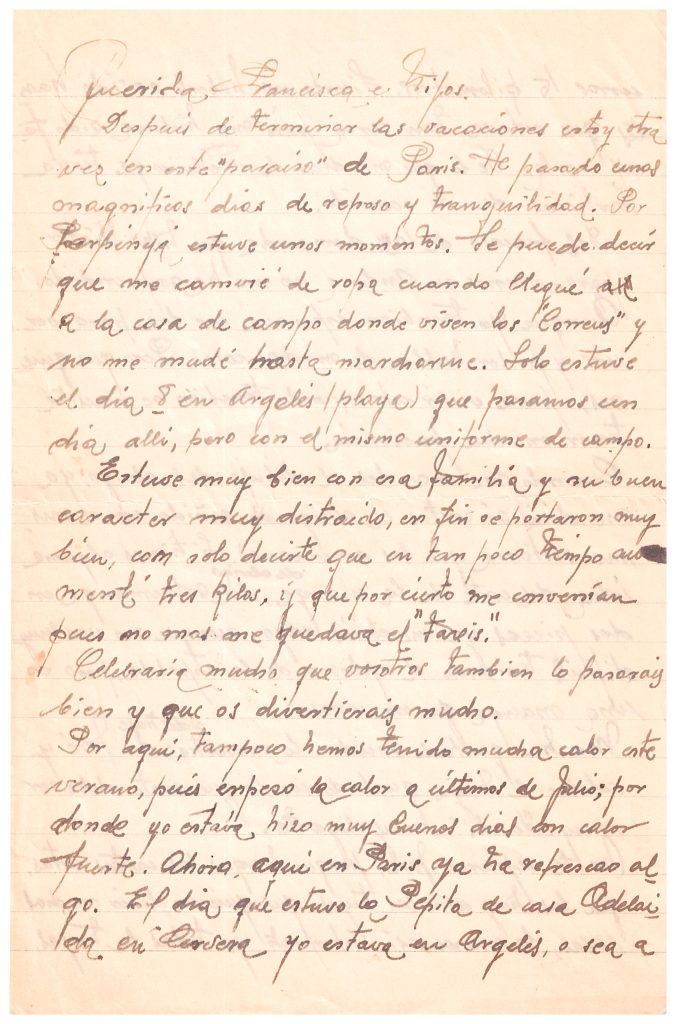 Querida Francisca e hijos.
Despues de terminar las vacaciones estoy otra
vez en este "paraiso" de Paris. He pasado unos
magnificos dias de reposo y tranquilidad. Por
Perpinyá estuve unos momentos. Se puede decir
que me camvié de ropa cuando llegué
a la casa de campo donde viven los "Correus" y
no me mudé hasta marcharme. Solo estuve
el dia 8 en Argelés (playa) que pasamos un
dia alli, pero con el mismo uniforme de campo.
Estuve muy bien con esa familia y su buen
caracter muy distraido, en fin se portaron muy
bien, com solo decirte que en tan poco tiempo au
menté tres kilos, y que por cierto me convenian
pues no mas me quedava el
Celebraria mucho que vosotros tambien lo pasarais
bien y que os divertierais mucho.
Por aqui, tampoco hemos tenido mucha calor este
verano, pués enpezó la calor a últimos de Julio; por
donde yo estava hizo muy buenos dias con calor
fuerte. Ahora, aqui en Paris ya ha refrescao al_
go. El dia que estuvo la Pepita de casa Adelai_
da en Cervera yo estava en Argelés, o sea a